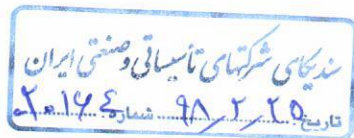 سندیکای شرکتهای تأسیساتی و صنعتی ایران
تاریخ ۹۸/۲/۲۵ شماره ۲۰۱۶۴